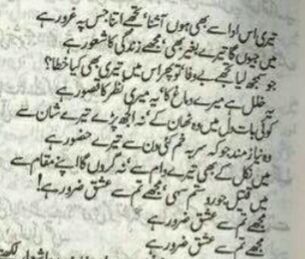 تیری اس ادا سے بھی ہوں آشنا، تجھے اتنا جس پہ غرور ہے
میں جیوں گا تیرے بغیر بھی، مجھے زندگی کا شعور ہے
جو سمجھ لیا تجھے بے وفا، تو پھر اس میں تیری بھی کیا خطا؟
یہ خلل ہے میرے دماغ کا، یہ میری نظر کا قصور ہے
کوئی بات دل میں وہ ٹھان کے، نہ الجھ پڑے تیری شان سے
وہ نیاز مند جو سر بہ خم کئی دن سے تیرے حضور ہے
میں نکل کے بھی تیرے دام سے، نہ گروں گا اپنے مقام سے
میں قتیل جور و ستم سہی، مجھے تم سے عشق ضرور ہے!
مجھے تم سے عشق ضرور ہے
مجھے تم سے عشق ضرور ہے